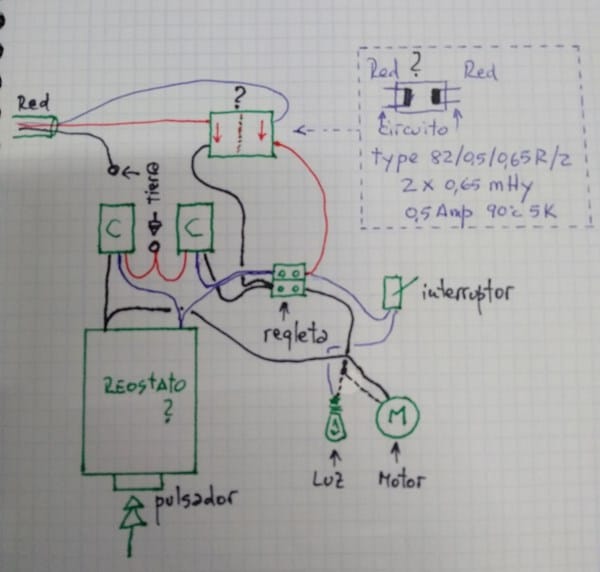 Red
?
Red ? Red
circuito
type 82/0,5/0,65R/2
2 x 0,65 mHy
0,5 Amp 90ºc 5K
tierra
C
C
regleta
interruptor
REOSTATO
?
pulsador
M
Luz
Motor